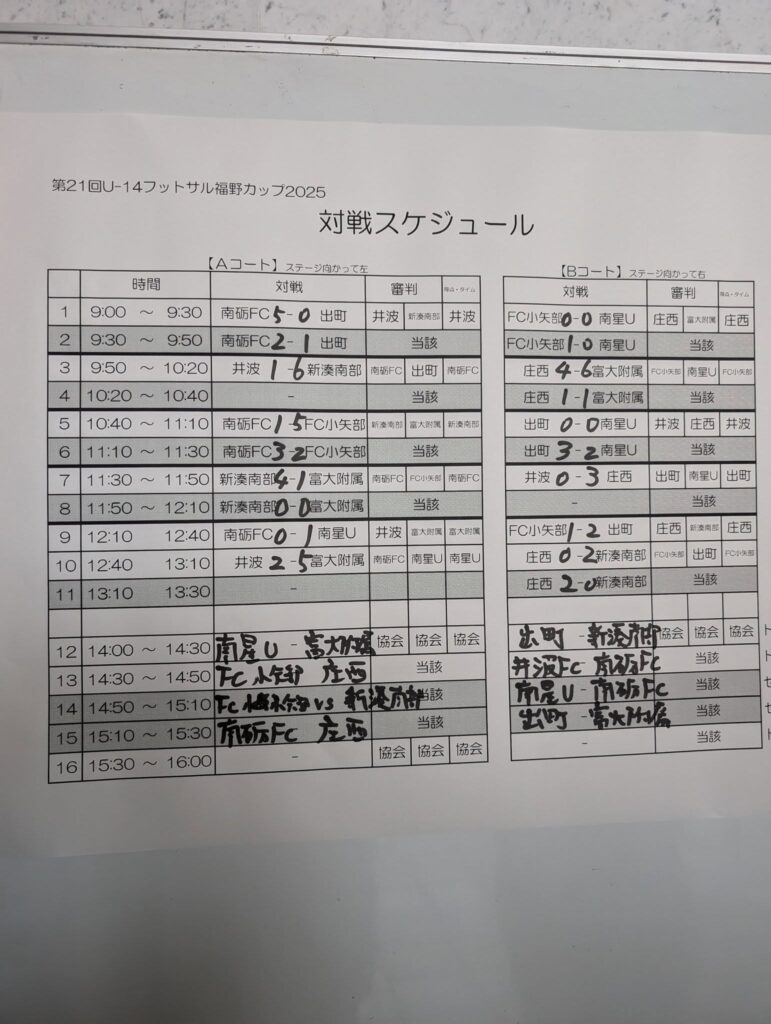 第21回U-14フットサル福野カップ2025
対戦スケジュール
【Aコート】ステージ向かって左 【Bコート】ステージ向かって右
時間 対戦 審判 得点・タイム 対戦 審判 得点・タイム
1 9:00 ～ 9:30 南砺FC 5-0 出町 井波 新湊南部 井波 FC小矢部 0-0 南星U 庄西 富大附属 庄西
2 9:30 ～ 9:50 南砺FC 2-1 出町 当該 FC小矢部 1-0 南星U 当該
3 9:50 ～ 10:20 井波 1-6 新湊南部 南砺FC 出町 南砺FC 庄西 4-6 富大附属 FC小矢部 南星U FC小矢部
4 10:20 ～ 10:40 - 当該 庄西 1-1 富大附属 当該
5 10:40 ～ 11:10 南砺FC 1-5 FC小矢部 新湊南部 富大附属 新湊南部 出町 0-0 南星U 井波 庄西 井波
6 11:10 ～ 11:30 南砺FC 3-2 FC小矢部 当該 出町 3-2 南星U 当該
7 11:30 ～ 11:50 新湊南部 4-1 富大附属 南砺FC FC小矢部 南砺FC 井波 0-3 庄西 出町 南星U 出町
8 11:50 ～ 12:10 新湊南部 0-0 富大附属 当該 - 当該
9 12:10 12:40 南砺FC 0-1 南星U 井波 富大附属 富大附属 FC小矢部 1-2 出町 庄西 新湊南部 庄西
10 12:40 13:10 井波 2-5 富大附属 南砺FC 南星U 南星U 庄西 0-2 新湊南部 FC小矢部 出町 FC小矢部
11 13:10 13:30 - 庄西 2-0 新湊南部 当該
12 14:00 ～ 14:30 南星U - 富大附属 協会 協会 協会 出町 - 新湊南部 協会 協会 協会
13 14:30 ～ 14:50 FC小矢部 庄西 当該 井波FC 南砺FC 当該
14 14:50 ～ 15:10 FC 小矢部 vs 新湊南部 当該 南星U - 南砺FC 当該
15 15:10 ～ 15:30 南砺FC 庄西 当該 出町 - 富大附属 当該
16 15:30 ～ 16:00 - 協会 協会 協会 - 当該